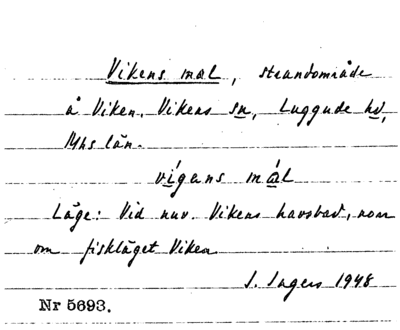 Vikens mal, strandområde
å Viken. Vikens sn, Luggude hd,
Mhs län.
vígans mál
Läge: Vid nuv. Vikens havsbad, norr
om fiskläget Viken
I. Ingers 1948
Nr 5693.